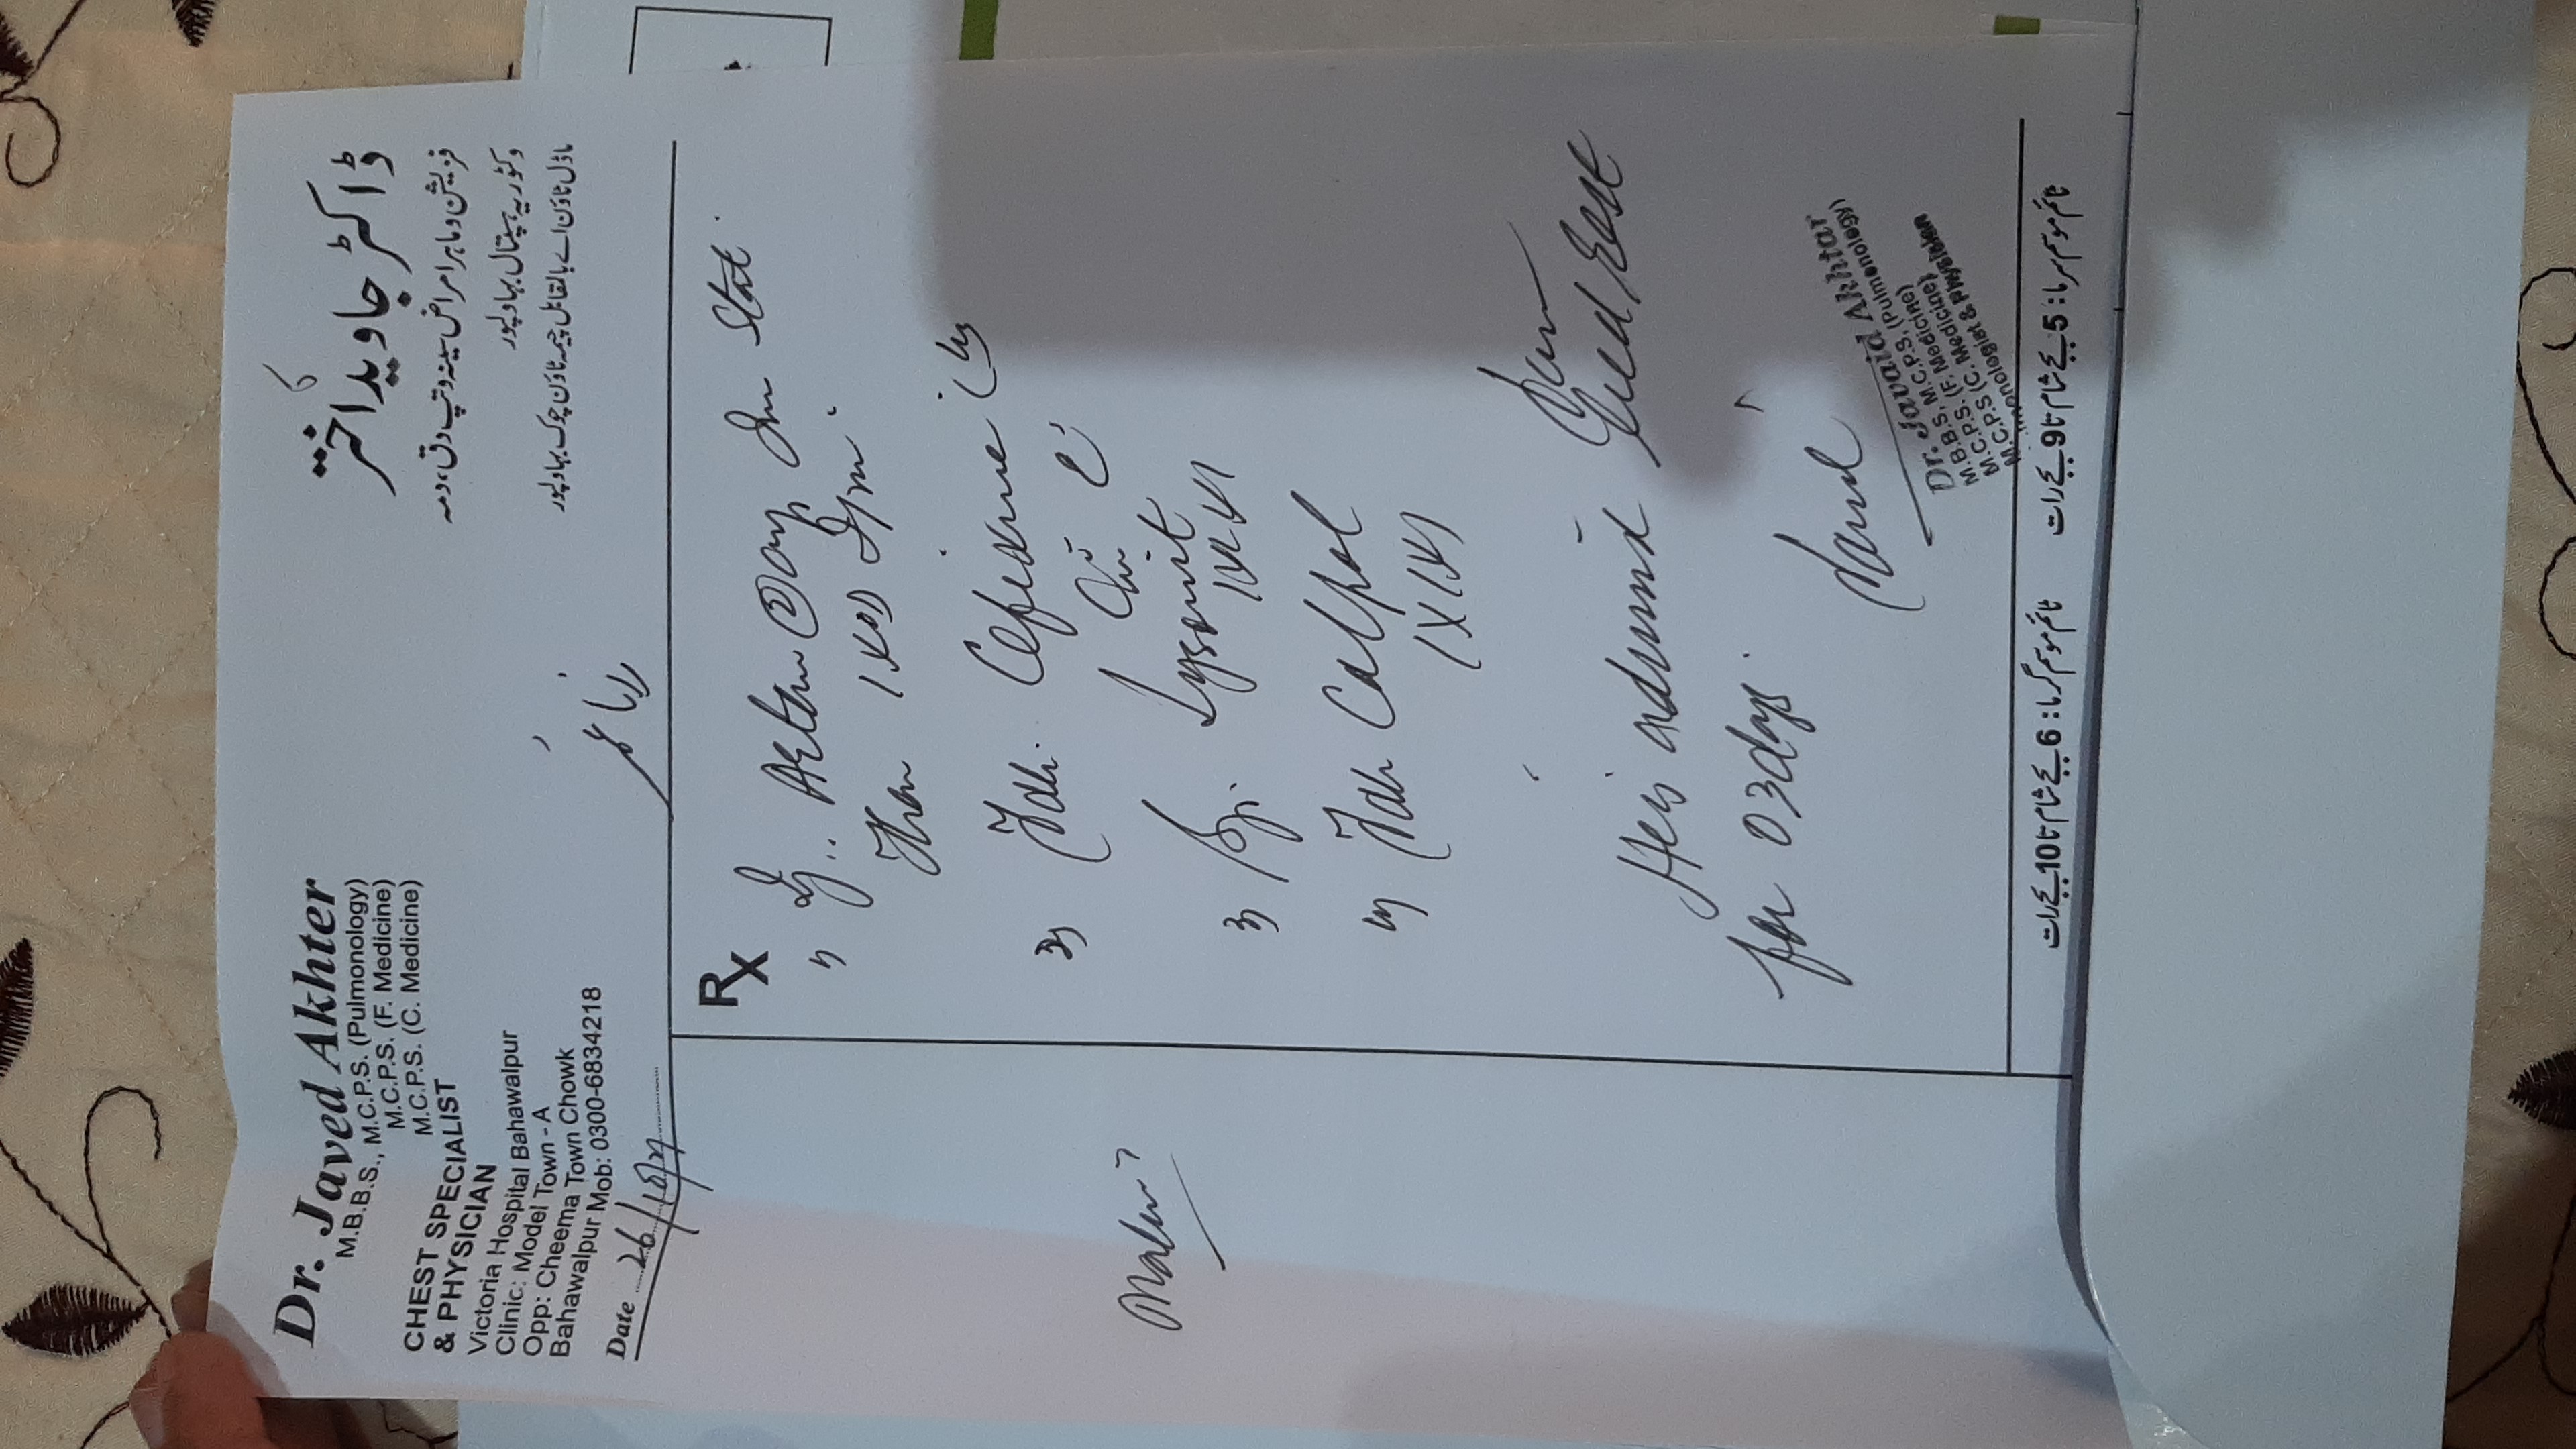 Dr. Javed Akhter
M.B.B.S., M.C.P.S. (Pulmonology)
M.C.P.S. (F. Medicine)
M.C.P.S. (C. Medicine)
CHEST SPECIALIST
& PHYSICIAN
Victoria Hospital Bahawalpur
Clinic: Model Town - A
Opp: Cheema Town Chowk
Bahawalpur Mob: 0300-6834218
ڈاکٹر جاوید اختر
فزیشن و ماہر امراض سینہ و تپ دق، دمہ
وکٹوریہ ہسپتال بہاولپور
ماڈل ٹاؤن اے بالمقابل چیمہ ٹاؤن چوک بہاولپور
Date 26/10/21
رانا عمر
Rx
1) Stat
Then 1x0D
2) Tab. Cefixime
3) Syp.
4) Tab Calpol
1x1x1
He is bed rest
for 03 days.
Dr. Javaid Akhtar
M.B.B.S, M.C.P.S, (Pulmonology)
M.C.P.S. (F. Medicine)
M.C.P.S (C. Medicine)
& Physician
ٹائم موسم سرما: 5 بجے شام تا 9 بجے رات
ٹائم موسم گرما: 6 بجے شام تا 10 بجے رات